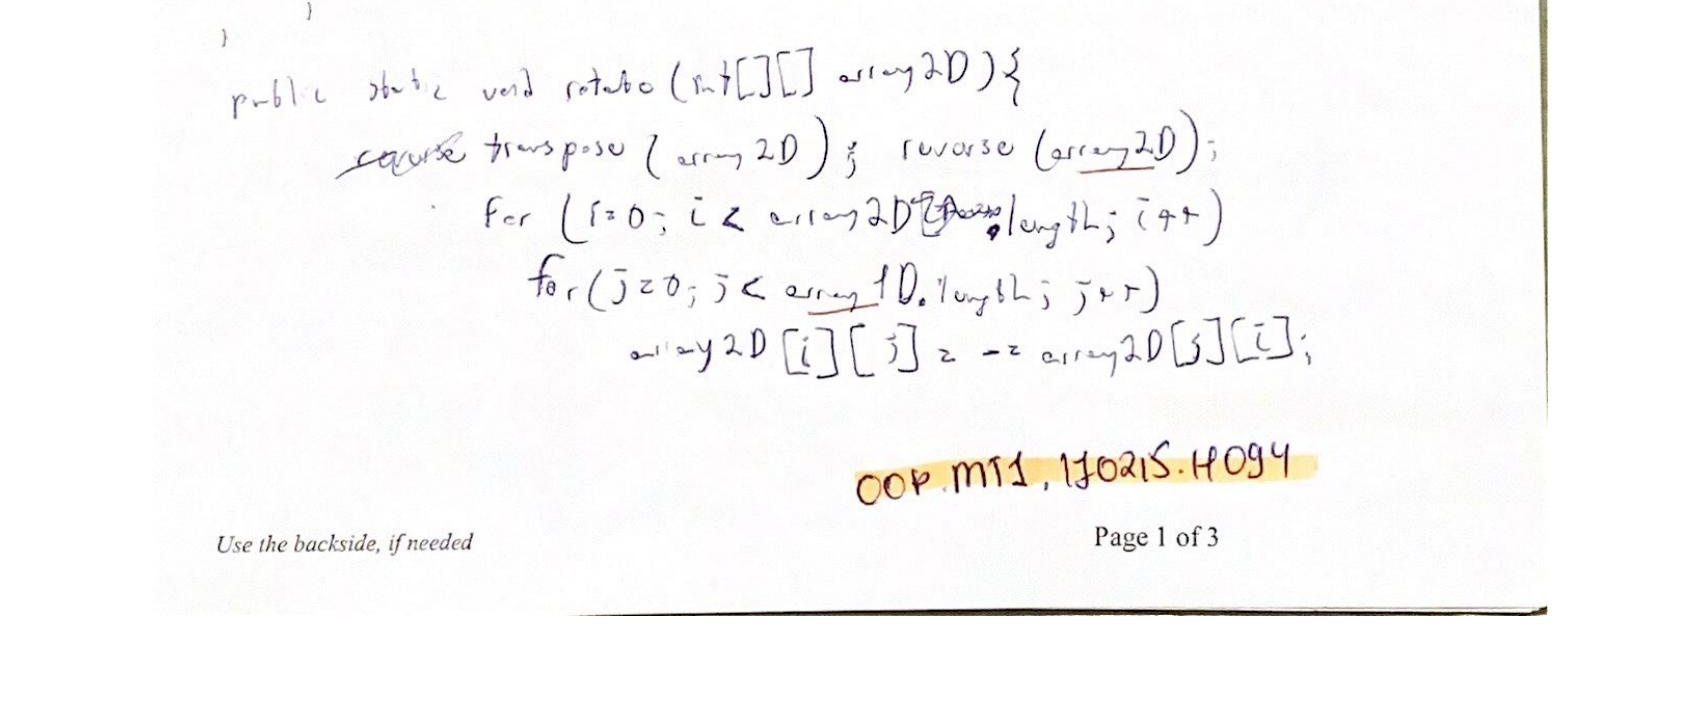 }
}
public static void rotate (int[][] array2D){
transpose (array2D); reverse (array2D);
for (i=0; i < array2D.length; i++)
for (j=0; j < array1D.length; j++)
array2D [i][j] = -= array2D[j][i];
OOP.MT1, 170215.H094
Use the backside, if needed
Page 1 of 3